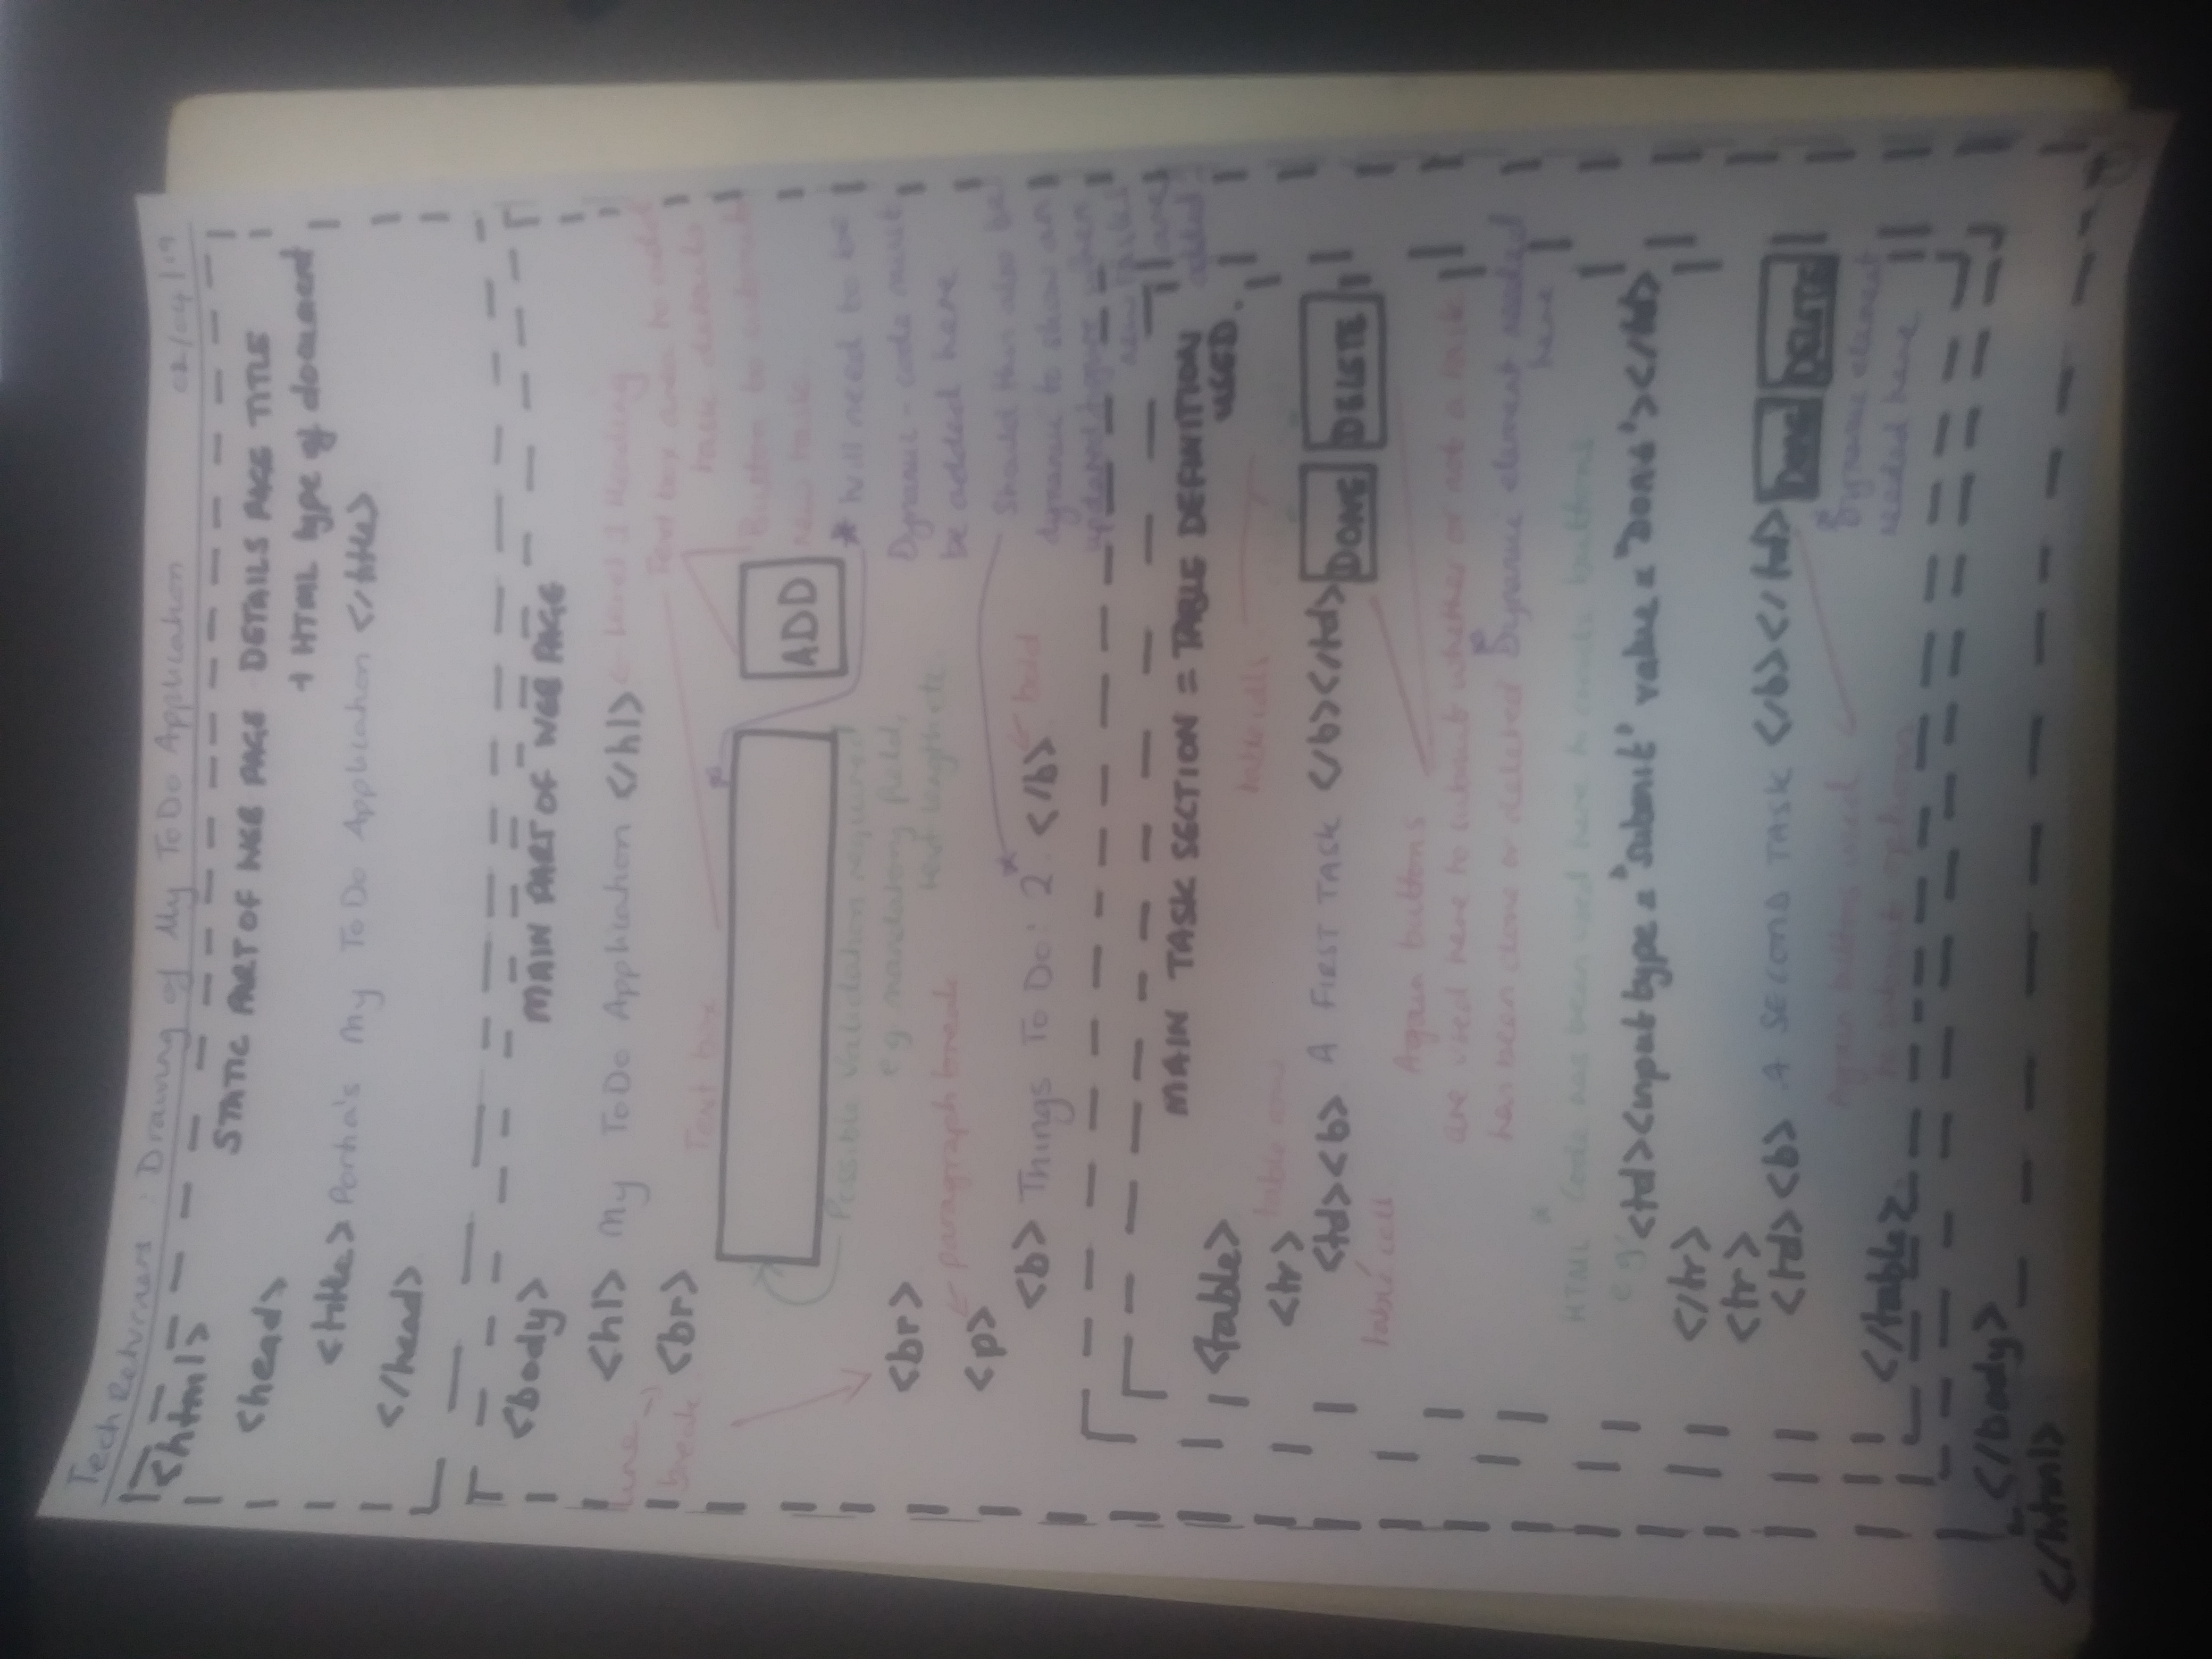 Tech Returners : Drawing of My ToDo Application 02/04/19
<html>
STATIC PART OF WEB PAGE DETAILS PAGE TITLE
+ HTML type of document
<head>
<title> Portia's My ToDo Application </title>
</head>
<body>
MAIN PART OF WEB PAGE
<h1> My ToDo Application </h1> ← Level 1 Heading
line → break
<br>
Text box
Text box area to add
task details
ADD
Button to submit
new task
Possible validation required
e.g. mandatory field,
text length etc.
* Will need to be
Dynamic - code must
be added here
<br>
<p> ← paragraph break
<b> Things To Do: 2* </b> ← bold
Should this also be
dynamic to show an
updated figure when
new tasks
are
added
MAIN TASK SECTION = TABLE DEFINITION
USED.
<table>
<tr> table row
table cells
<td><b> A FIRST TASK </b></td> DONE DELETE
table cell
Again buttons
are used here to submit whether or not a task
has been done or deleted *Dynamic element needed
here
HTML * Code has been used here to create buttons
e.g.
<td><input type="submit" value="Done"></td>
</tr>
<tr>
<td><b> A SECOND TASK </b></td> DONE DELETE
Again buttons used
to submit options
*Dynamic element
needed here
</table>
</body>
</html>